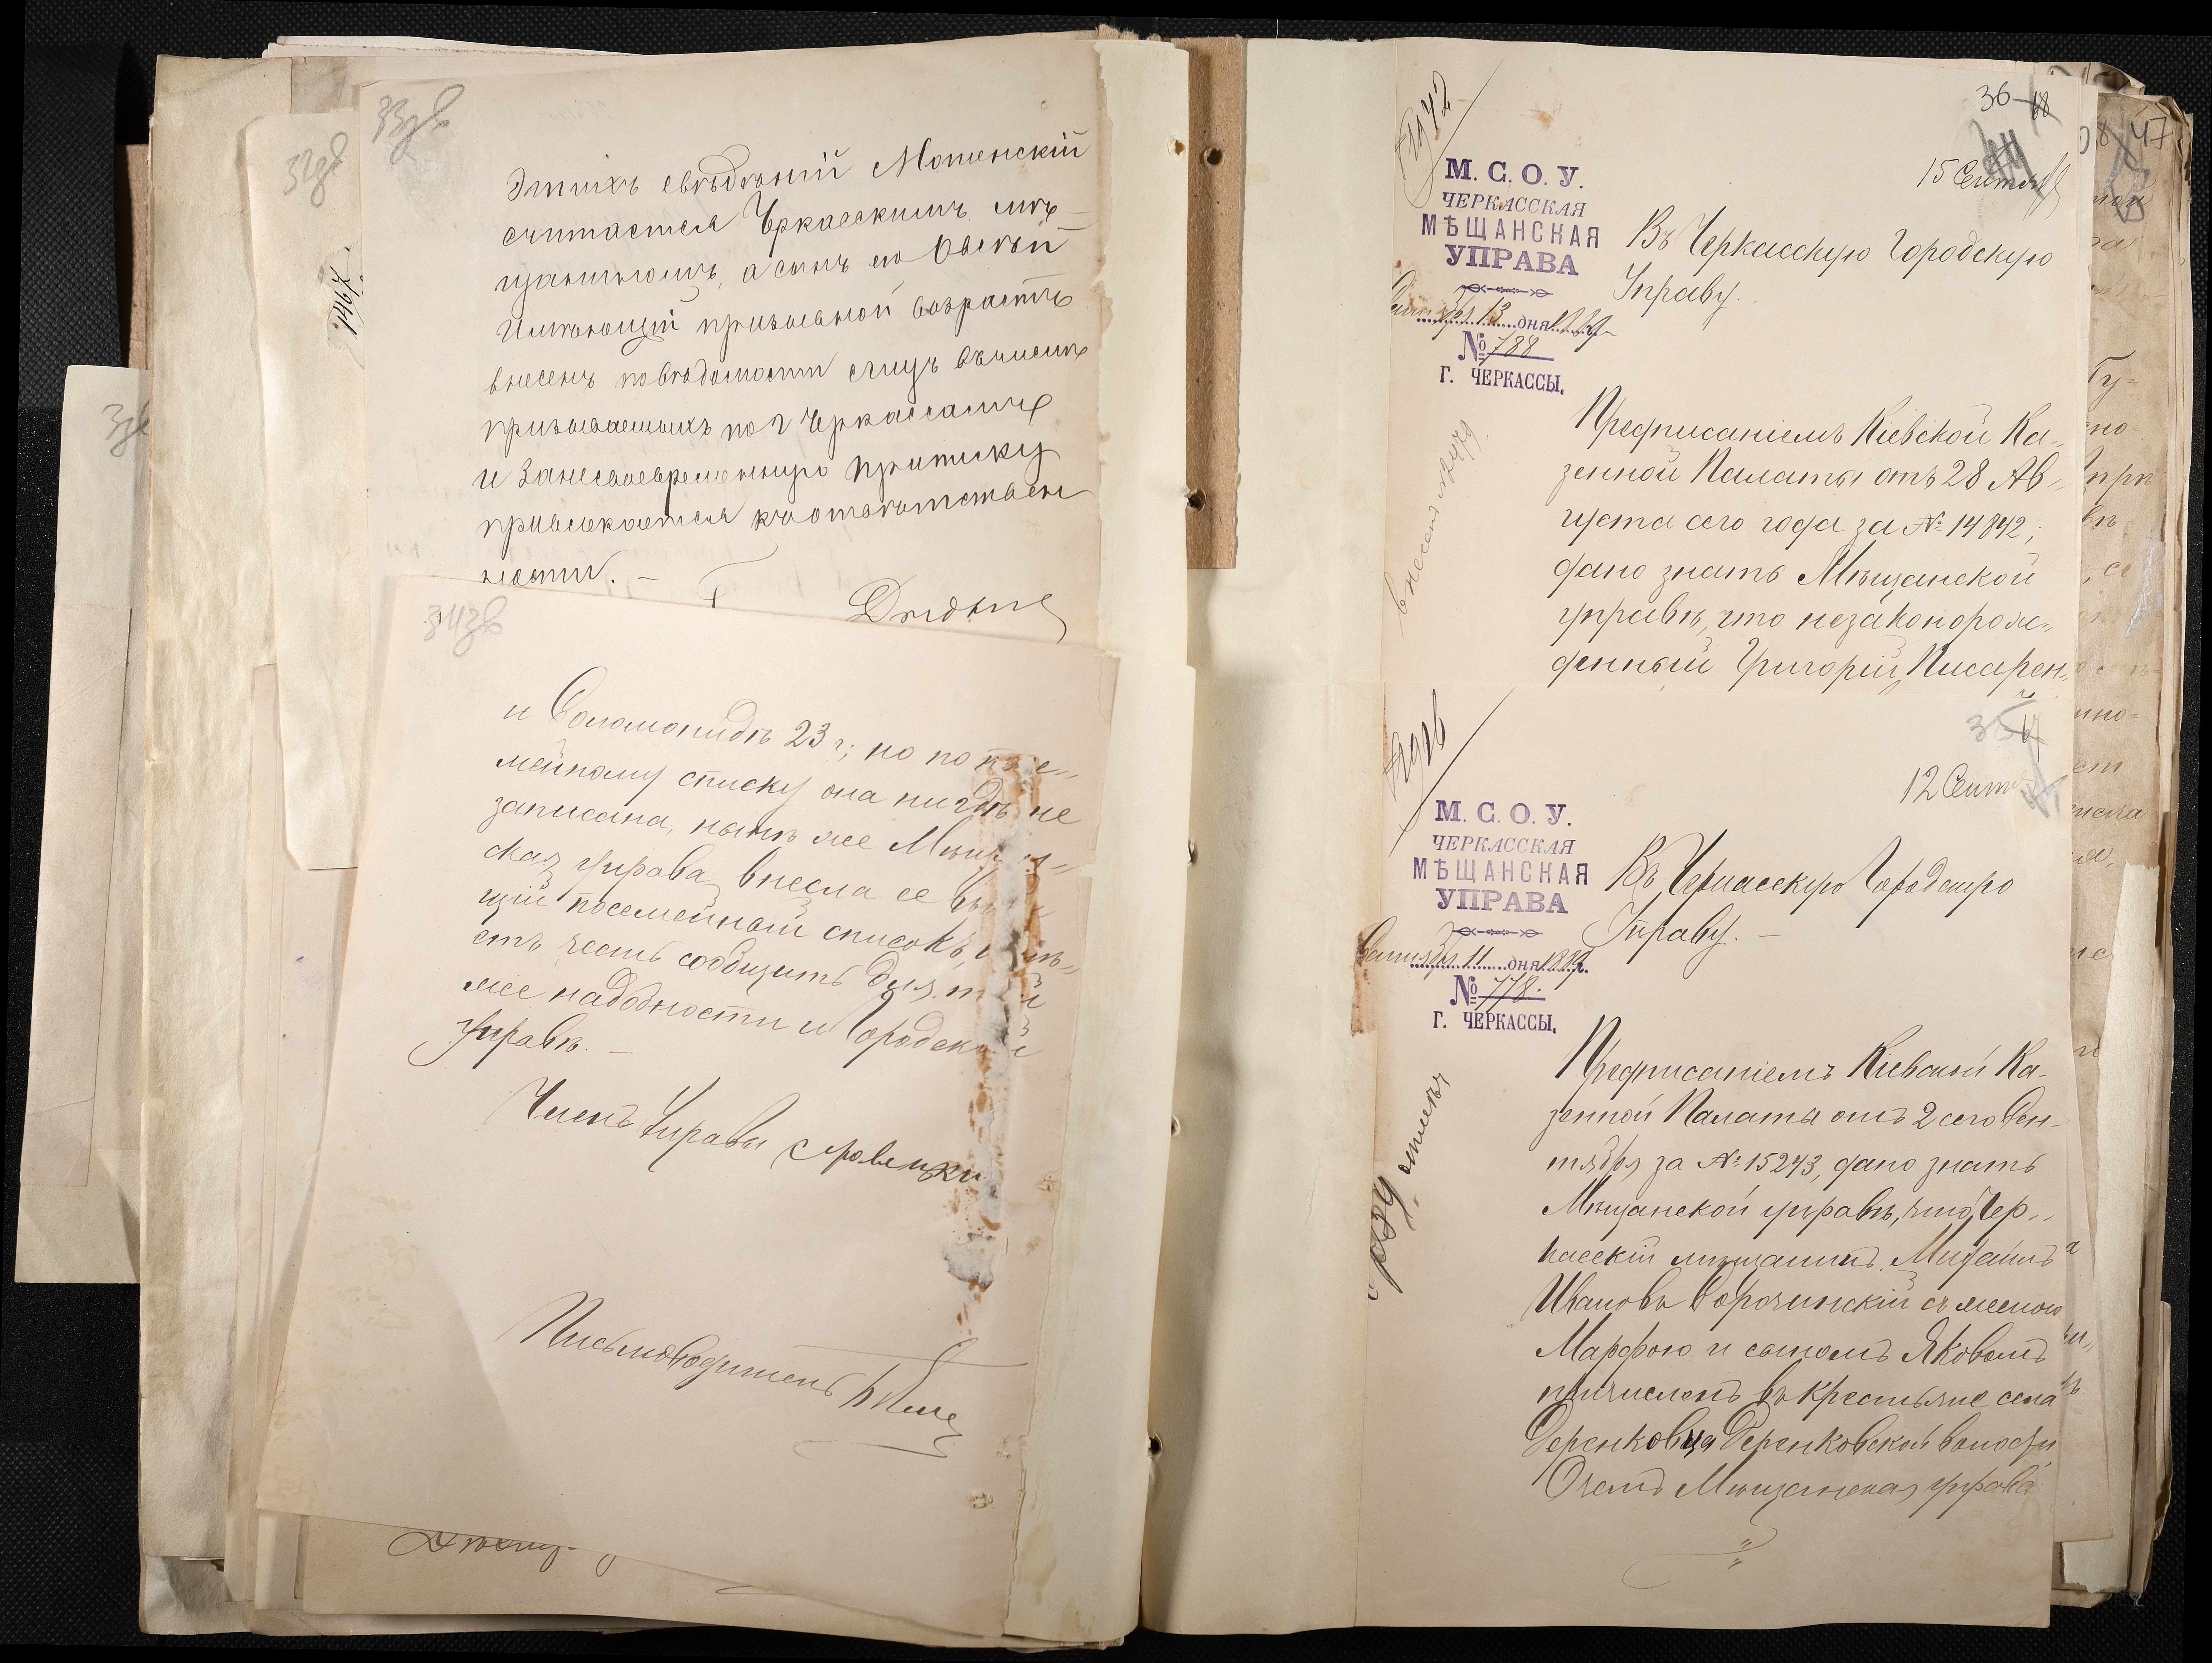 33зв
Этихъ свѣдѣній Мотенскій
считается Черкасскимъ мѣ-
щаниномъ, а сынъ его Овсей
имѣющій призывной возрастъ
внесенъ по вѣдомости лицъ въ число
призываемыхъ по г Черкассамъ
и за несвоевременную приписку
привлекается къ отвѣтствен
ности. —
32зв
1467.
34зв
и Соломонидѣ 23 г; но по
мейному списку она нигдѣ не
записана, нынѣ же
ская управа внесла ее
щій посемейный списокъ,
етъ честь сообщить для
же надобности и Городской
Управѣ. —
Членъ Управы
Письмоводитель
36
68
15 Сентяб
М. С. О. У.
ЧЕРКАССКАЯ
МѢЩАНСКАЯ
УПРАВА
Сентября 13 дня 1889
№ 788
Г. ЧЕРКАССЫ.
Въ Черкасскую Городскую
Управу.
Предписаніемъ Кіевской Ка-
зенной Палаты отъ 28 Ав-
густа сего года за № 14842,
дано знать Мѣщанской
управѣ, что незаконорож-
денный Григорій Писарен-
35
67
12 Сент
М. С. О. У.
ЧЕРКАССКАЯ
МѢЩАНСКАЯ
УПРАВА
Сентября 11 дня 1889.
№ 778.
Г. ЧЕРКАССЫ.
Въ Черкасскую Городскую
Управу. —
Предписаніемъ Кіевской Ка-
зенной Палаты отъ 2 сего Сен-
тября за № 15243, дано знать
Мѣщанской управѣ, что Чер-
касскій мѣщанинъ Михаилъ
Ивановъ Сорочинскій съ женою
Марфою и сыномъ Яковомъ
причисленъ въ крестьяне села
Деренковца Деренковской волости
О чемъ Мѣщанская управа
47